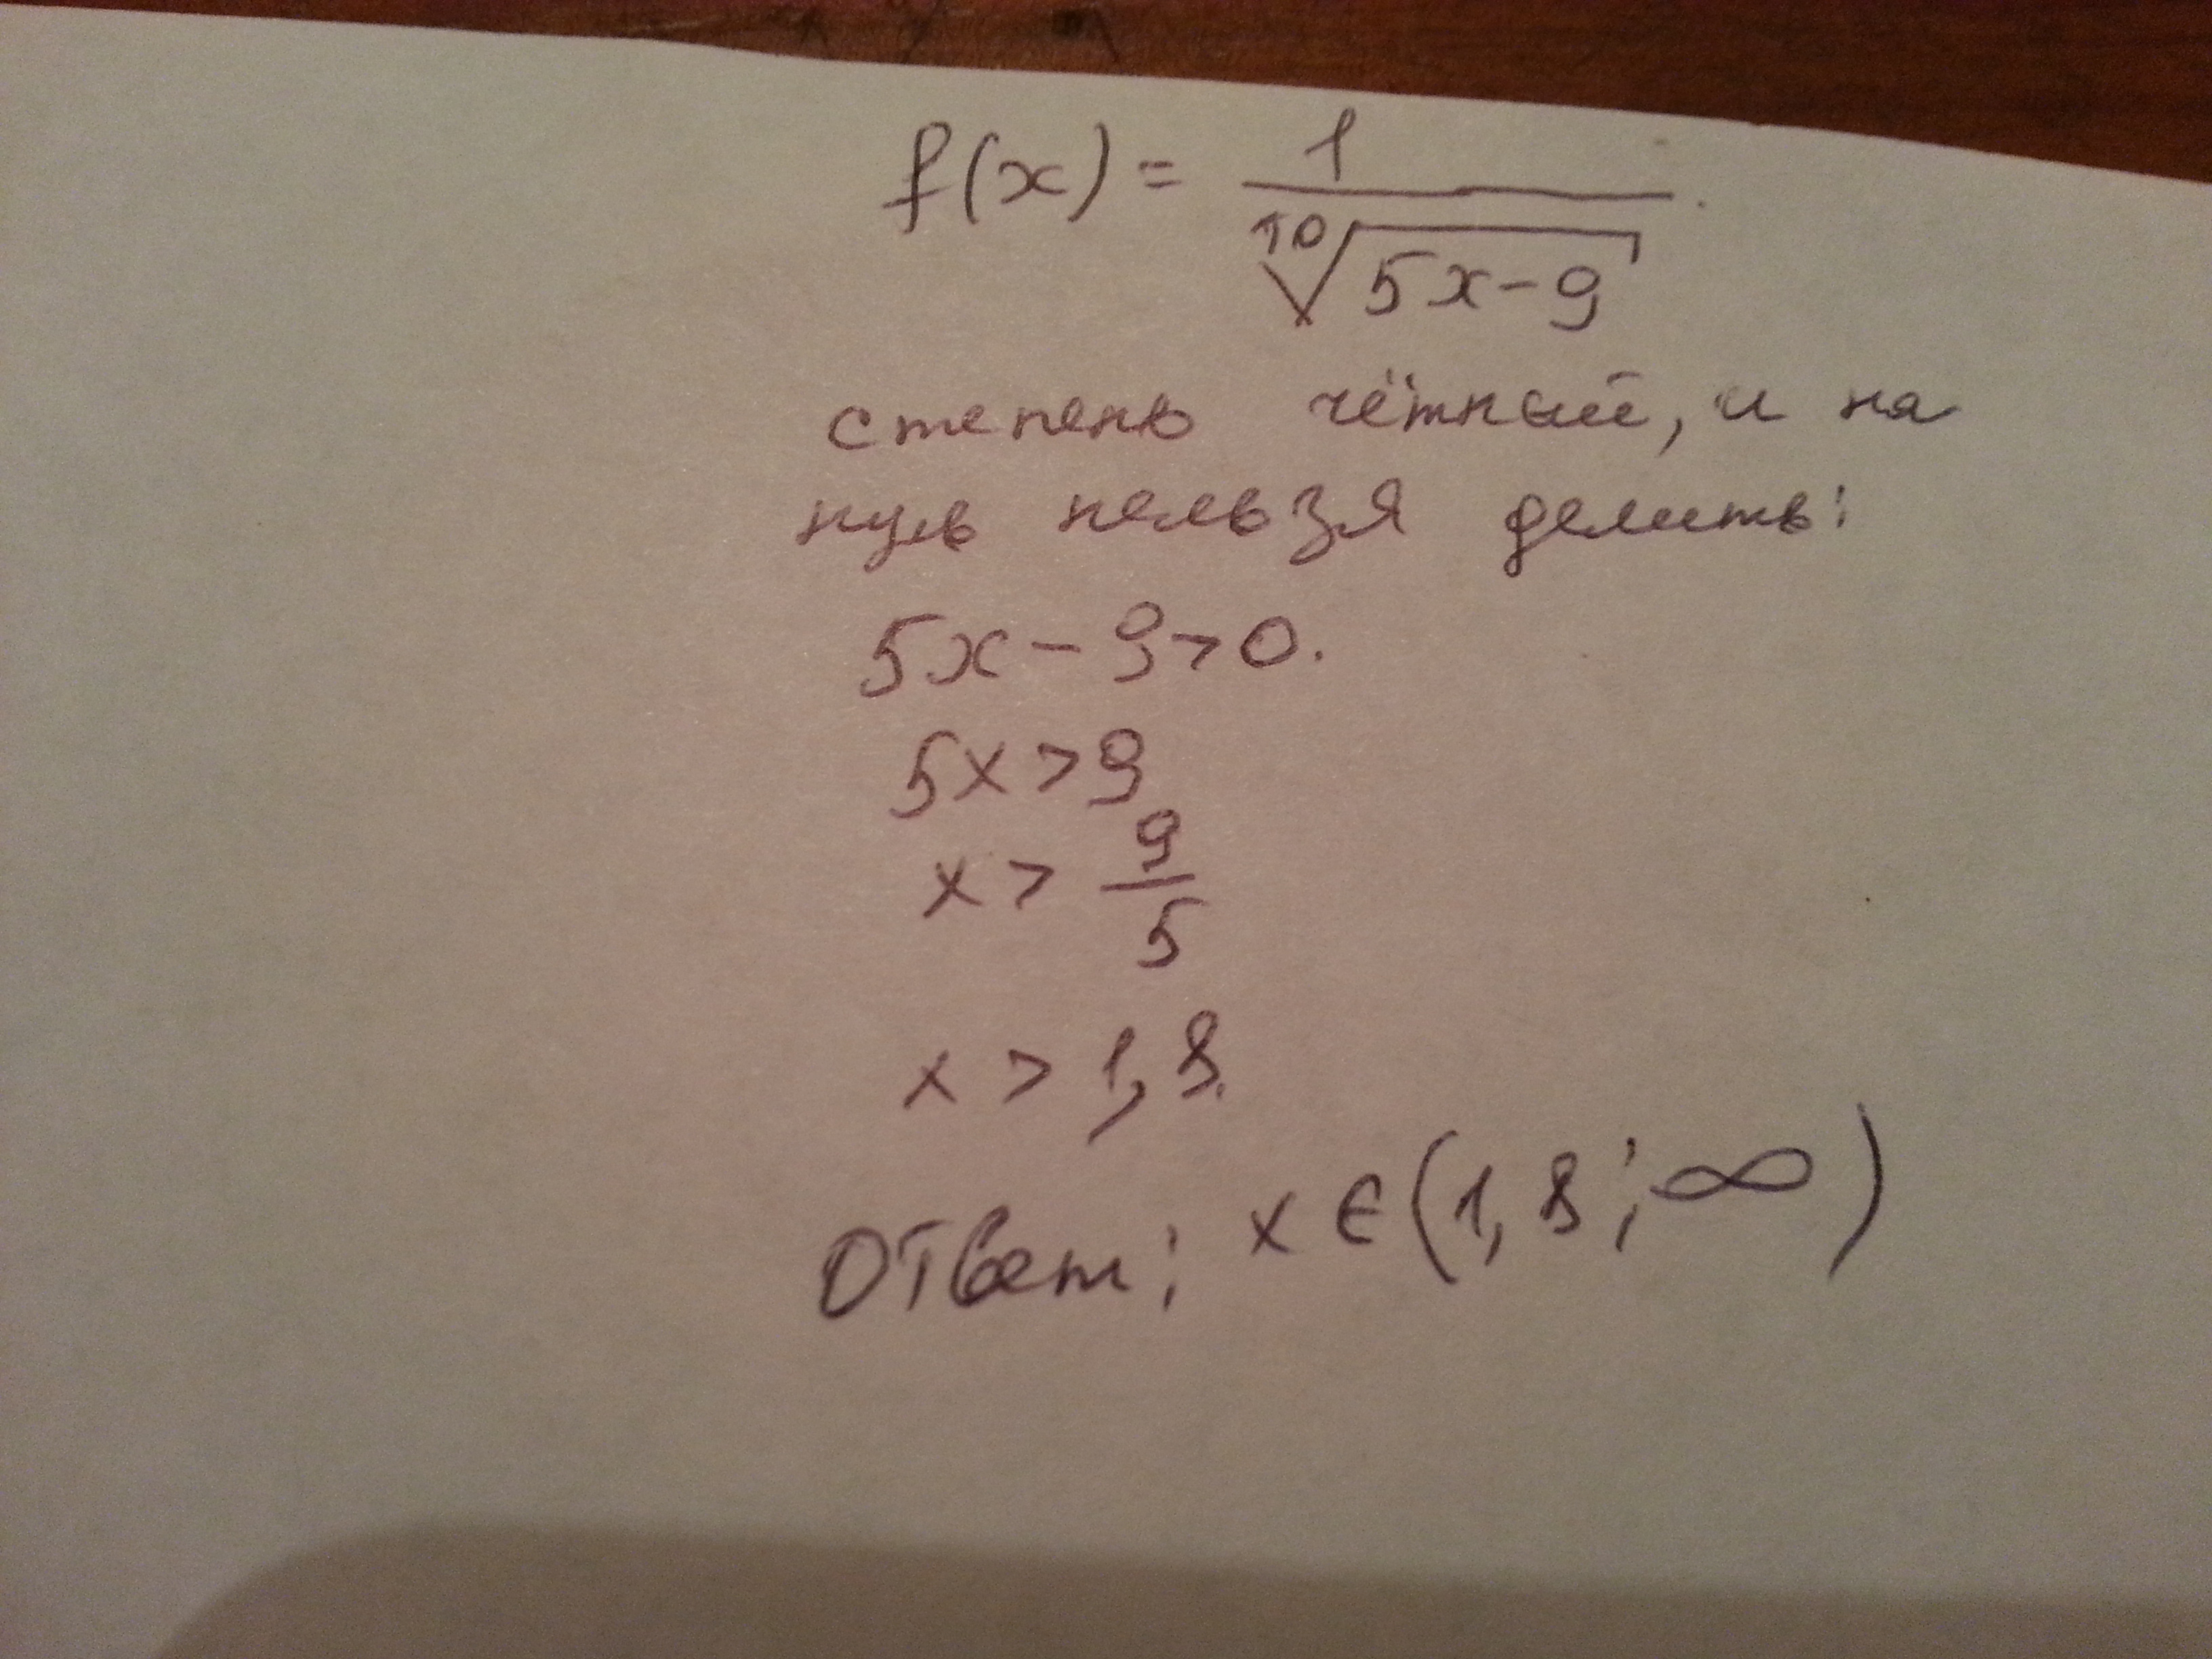 f(x) = 1 / ¹⁰√(5x-9).
степень чётный, и на
нуль нельзя делить:
5x - 9 > 0.
5x > 9
x > 9/5
x > 1,8.
Ответ: x ∈ (1,8; ∞)